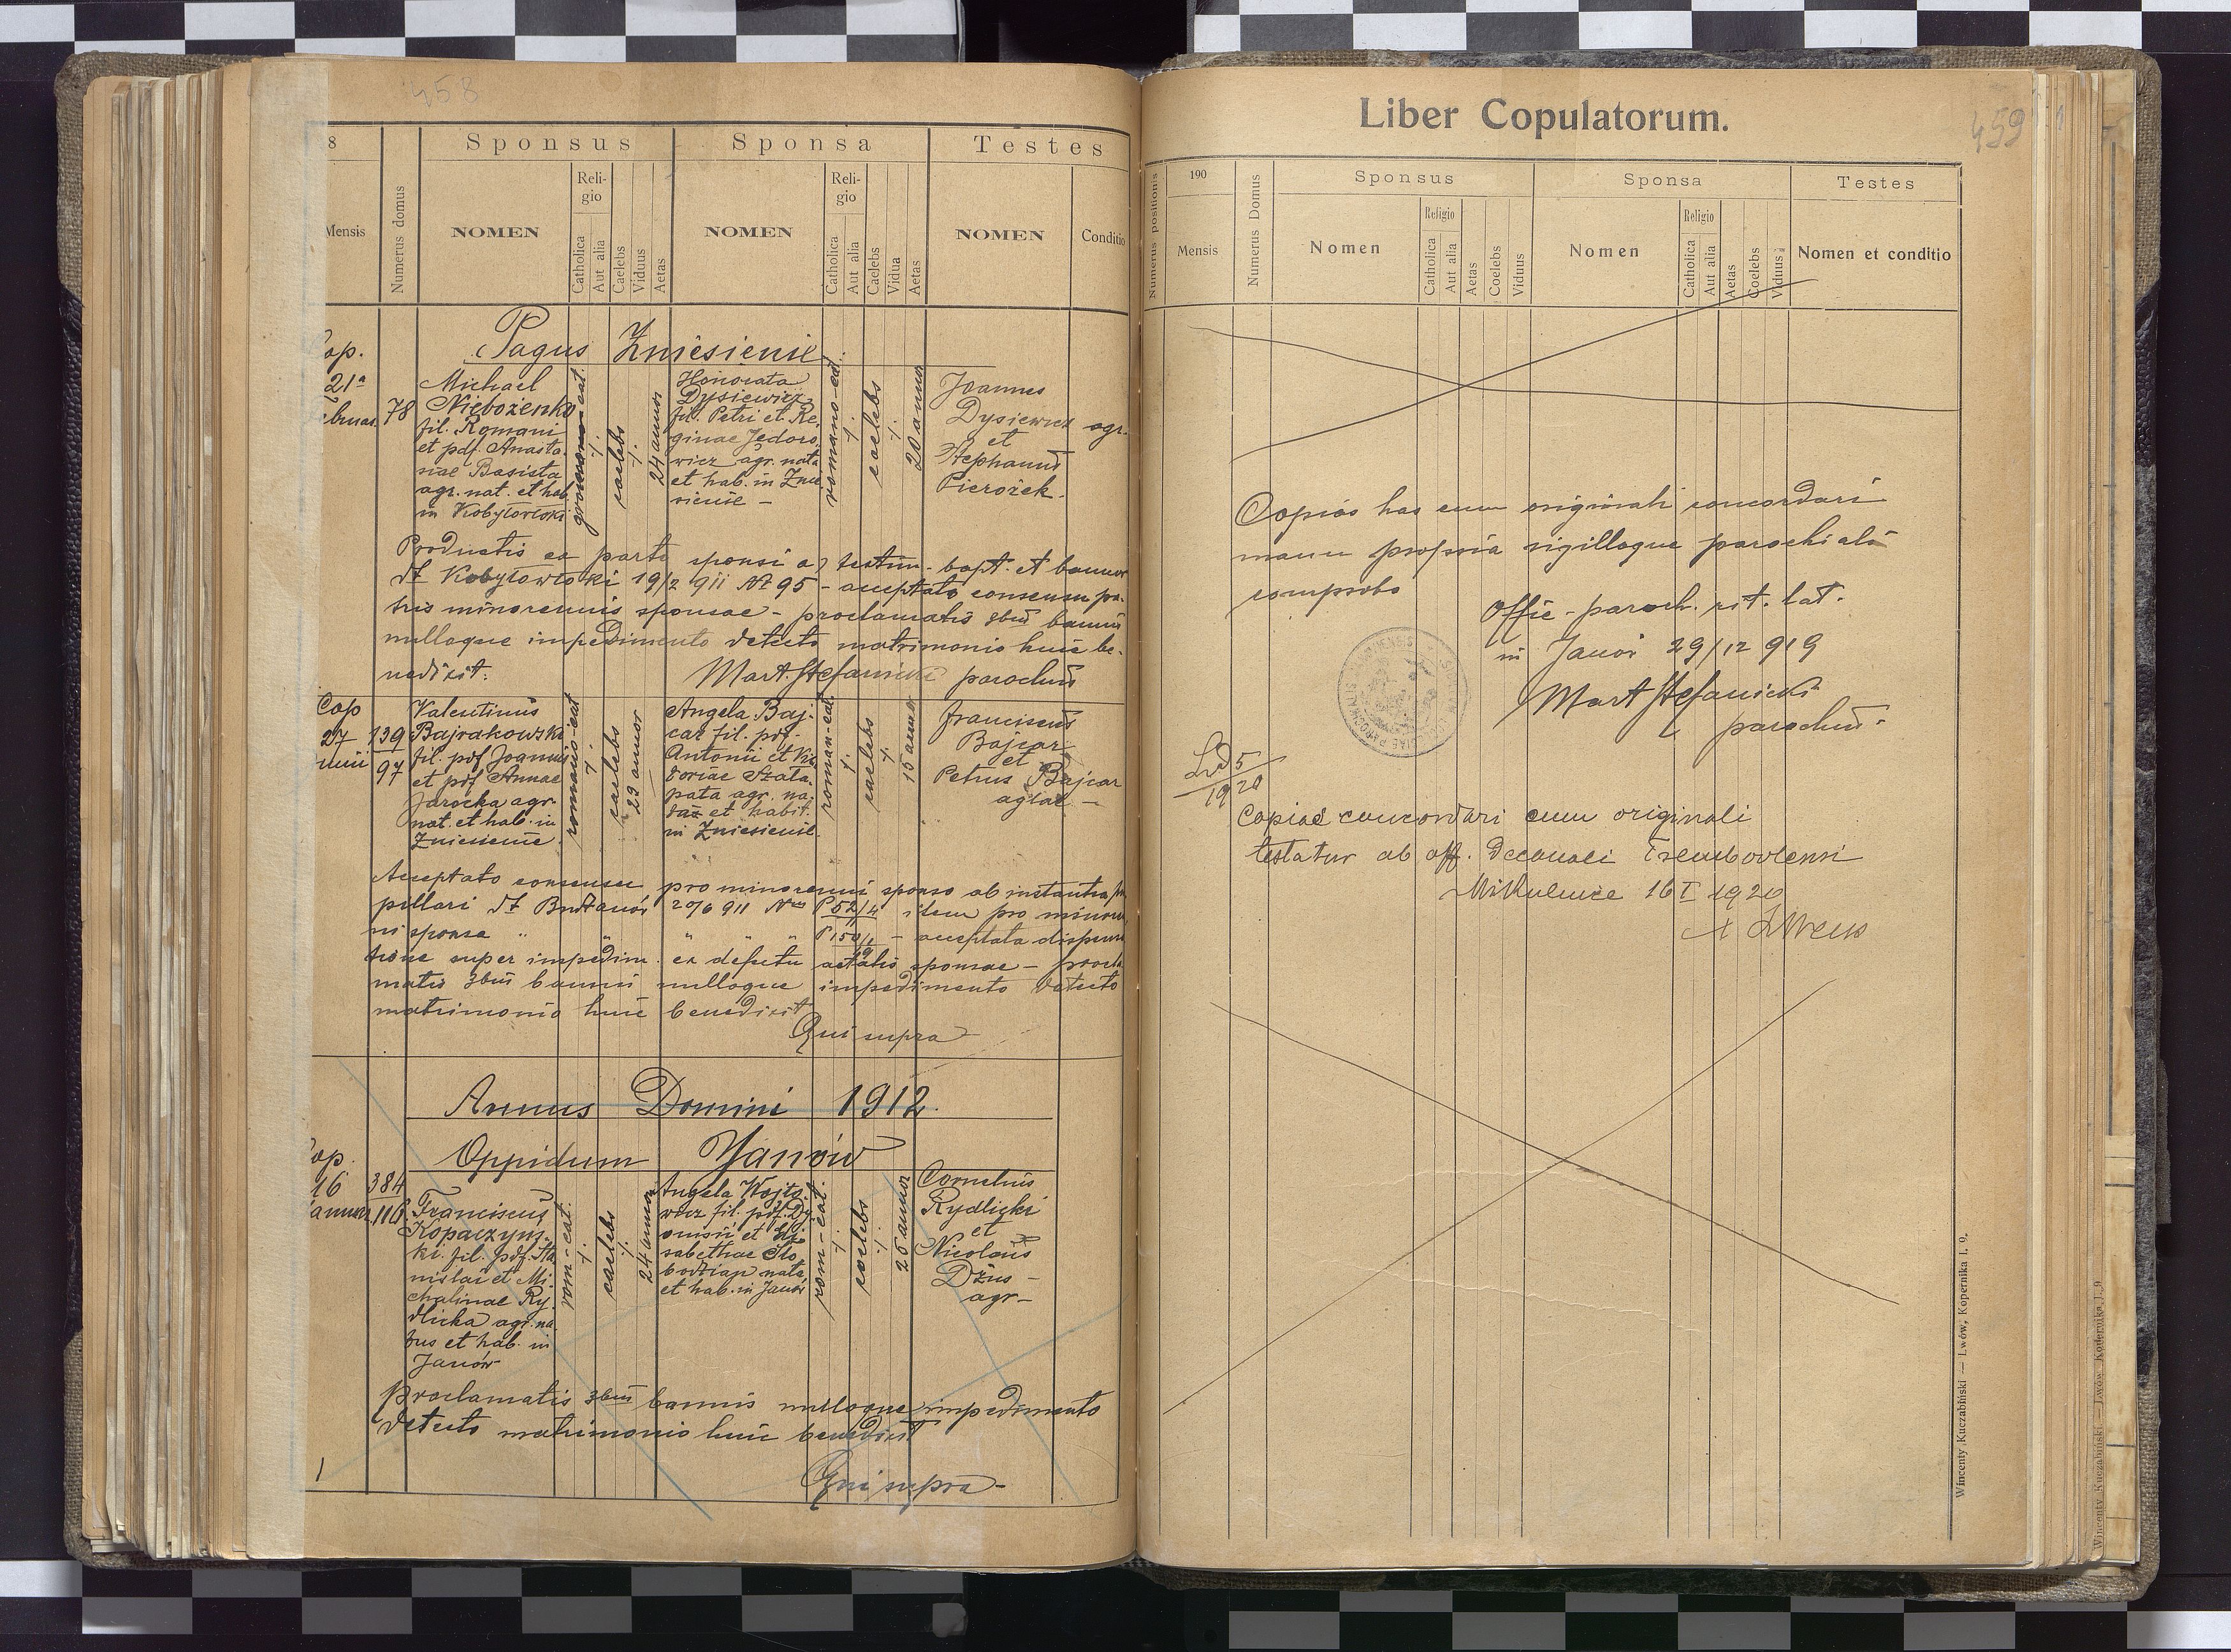 458
8
Sponsus
Sponsa
Testes
Mensis
Numerus domus
NOMEN
Reli-
gio
Catholica
Aut alia
Caelebs
Viduus
Aetas
NOMEN
Reli-
gio
Catholica
Aut alia
Caelebs
Vidua
Aetas
NOMEN
Conditio
Pagus Zniesienie
op.
21a
ebruar.
78
Michael
Niebożenko
fil. Romani
et pdf. Anasta-
siae Basista
agr. nat. et hab.
in Kobyłowłoki
caelebs
24 annor
Honorata
Dysiewicz
fil. Petri et Re-
ginae Jedoro-
wicz agr. nata
et hab. in Znie-
sienie -
romano-cat.
caelebs
20 annor
Joannes
Dysiewicz
et
Stephanus
Pierożek.
agr.
Productis ex parte sponsi a) testim. bapt. et bannor
dt Kobyłowłoki 19/2 911 N 95 - acceptato consensu pa-
tris minorennis sponsae - proclamatis 3bus bannis
nulloque impedimento detecto matrimonio huic be-
nedixit.
Mart. Stefanicki parochus
Cop
27
139
97
Valentinus
Bajrakowski
fil. pdf Joannis
et pdf Annae
Jarocka agr.
nat. et hab. in
Zniesienie
romano-cat
caelebs
23 annor
Angela Baj-
car fil. pdf.
Antonii et Vi-
toriae Szata-
pata agr. na-
ta et habit.
in Zniesienie.
roman-cat.
caelebs
15 annor
Franciscus
Bajcar
et
Petrus Bajcar
aglae -
Acceptato consensu pro minorenni sponso ab instantia
pillari dt Budzanów 20/6 911 P 52/4 item pro minoren
ni sponsa " " " " P 150/1 - acceptata dispensa
tione super impedim. ex defectu aetatis sponsae - procla
matis 3bus bannis nulloque impedimento detecto
matrimonio huic benedixit
Qui supra
Annus Domini 1912.
Oppidum Janów
op.
16
anuar
384
116
Franciscus
Kopaczyns-
ki fil. pdf. Sta-
nislai et Mi-
chalinae Ry-
dlicka agr. na-
tus et hab. in
Janów
rom-cat.
caelebs
24 annor
Angela Wojto-
wicz fil. pdf. Dy-
onisii et Eli-
sabethae Sło-
bodzian nata
et hab. in Janów
rom-cat.
caelebs
26 annor
Cornelius
Rydlicki
et
Nicolaus
Dżus -
agr-
Proclamatis 3bus bannis nulloque impedimento
detecto matrimonio huic benedixit
Qui supra -
Liber Copulatorum.
459
Numerus positionis
190
Mensis
Numerus Domus
Sponsus
Sponsa
Testes
Nomen
Religio
Catholica
Aut alia
Aetas
Coelebs
Viduus
Nomen
Religio
Catholica
Aut alia
Aetas
Coelebs
Viduus
Nomen et conditio
Copias has cum originali concordari
manu propria sigilloque parochiali
comprobo
Offic. paroch. rit. lat.
in Janów 29/12 919
Mart Stefanicki
parochus.
5
1920
Copiae concordari cum originali
testatur ab off. Decanali Trembovlensi
Mikulince 16 I 1920
Wincenty Kuczabiński — Lwów, Kopernika l. 9.
Wincenty Kuczabiński — Lwów, Kopernika l. 9